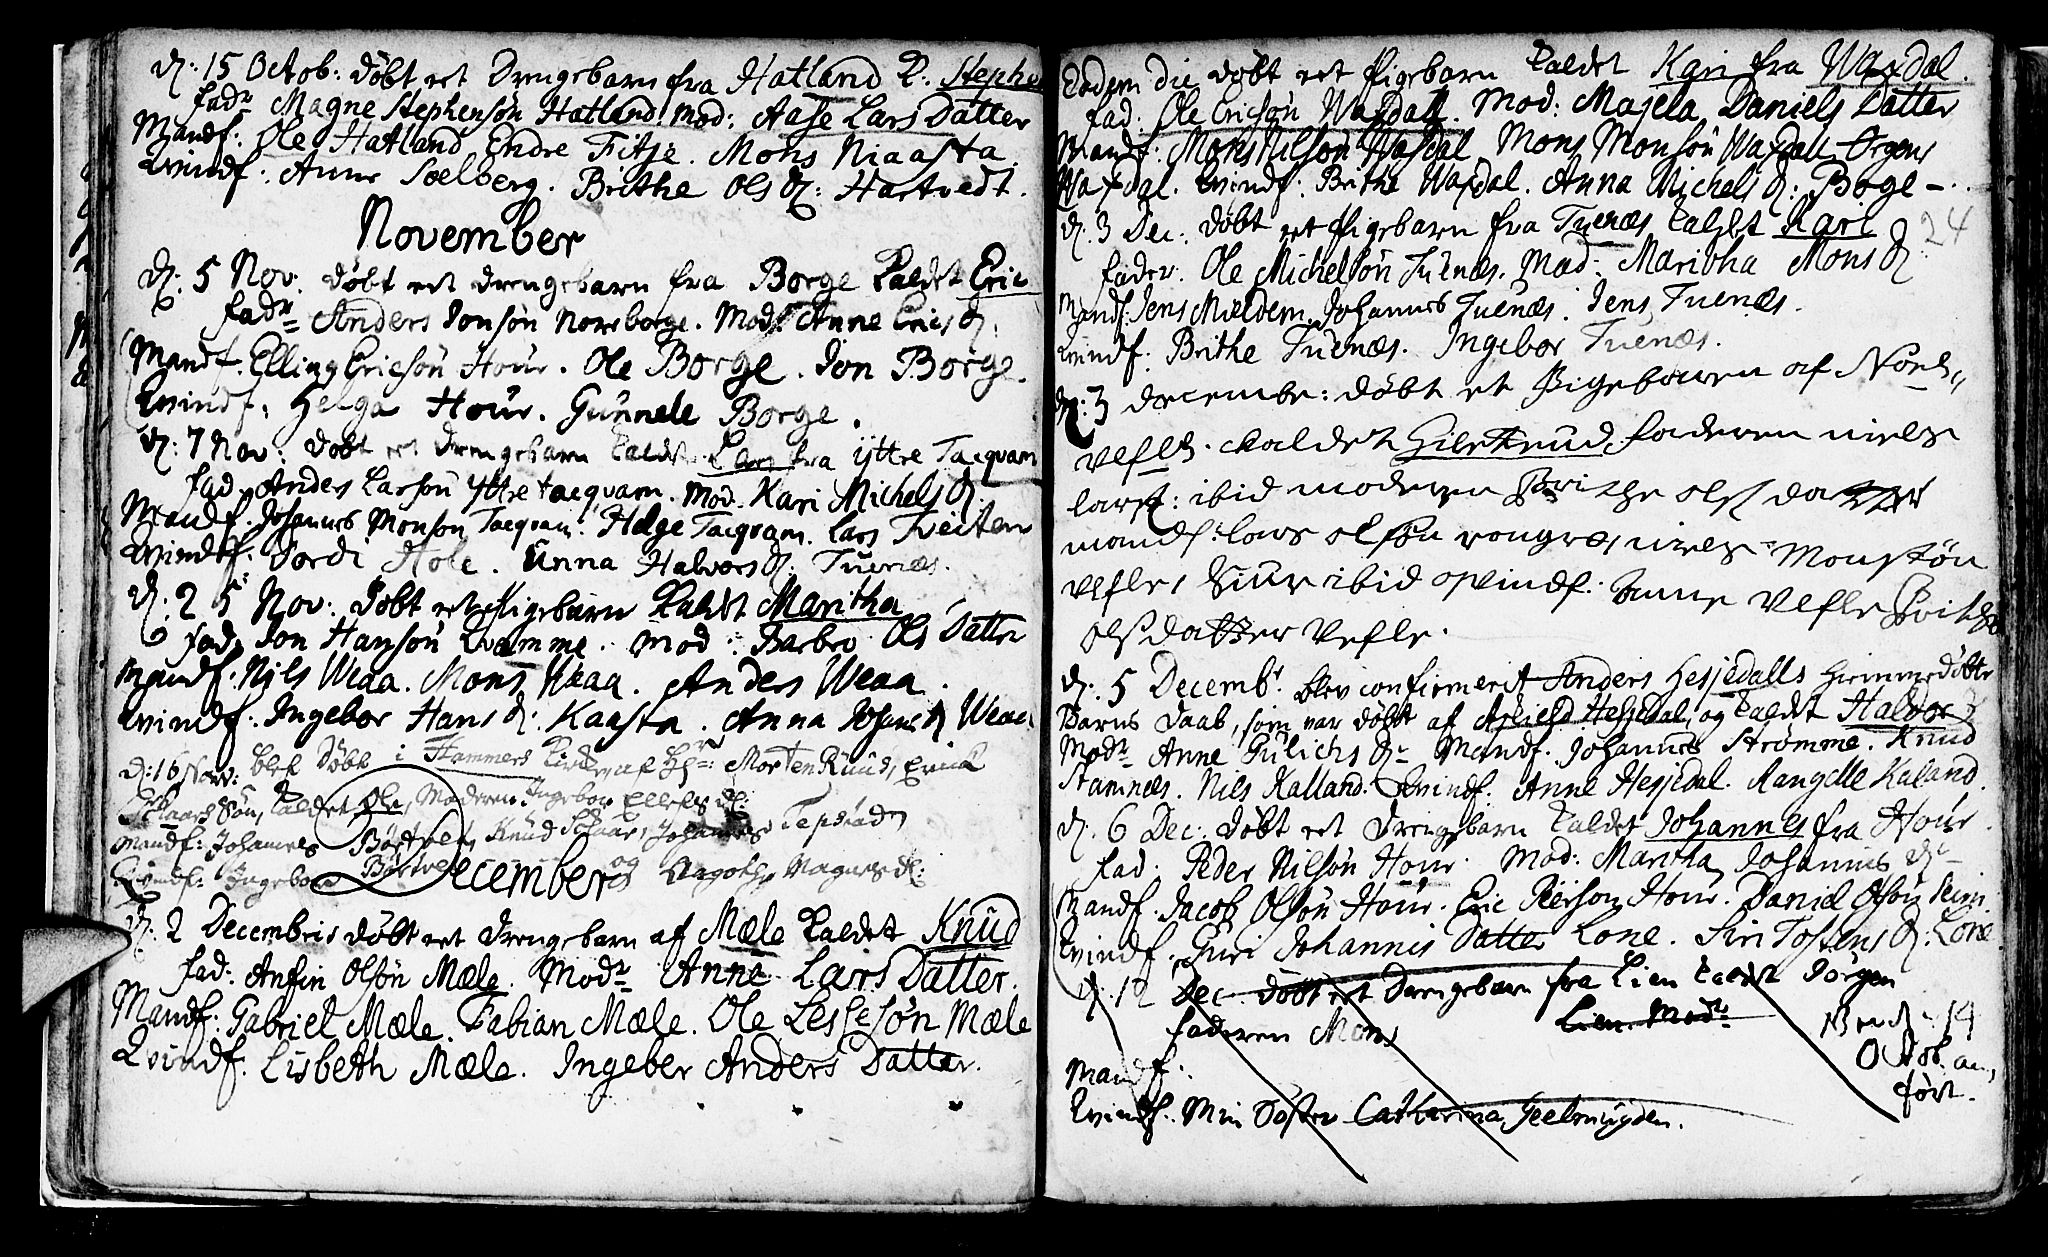 d: 15 Octob: døbt et Drengebarn fra Hatland k: Stephe
fadr Magne Stephensøn Hatland. Mod: Aase Lars Datter
Mandf: Ole Hatland Endre Fitje. Mons Niaasta
Qvindf: Anne Soelberg. Brithe Ols d: Hartvedt.
November
d: 5 Nov: døbt et drengebarn fra Borge kaldet Eric
fadr Anders Jonsøn Norrborge. Modr Anne Erics d:
Mandf. Elling Ericsøn Hour. Ole Borge. Jon Borge.
Qvindf: Helga Hour. Gunnele Borge.
d: 7 Nov: døbt et drengebarn kaldet Lars fra ijttre Tacqvam
fad. Anders Larsøn yttre tacqvam. Mod. Kari Michels d:
Mandf. Johannes Monsøn Tacqvam. Helge Tacqvam. Lars Tveiten
Qvindf. Jordi Hole. Unna Halvors d: Tuenæs.
d: 25 Nov: Døbt et Pigebarn kaldet Maritha
fad. Jon Hansøn Qvamme. Mod: Barbro Ols Datter
Mandf. Nils Weaa. Mons Weaa. Anders Weaa.
Qvindf. Ingebor Hans d: Kaasta. Anna Johans d Weaa
d: 16 Nov: blef døbt i Hammers Kirke af Hr: Morten Ruud, Erick
Skaars Søn, kaldet Ole, Moderen Ingebor Ellefs d:
Mandf: Johannes Børtvet, Knud Skaar, Johannes Tepstad
Qvindf: Ingebor Børtvet og Magnes d:
December
d: 2 Decembris døbt et drengebarn af Mæle kaldet Knud
fad: Anfin Olsøn Mæle. Modr Anne Lars Datter.
Mandf: Gabriel Mæle. Fabian Mæle. Ole Lessesøn Mæle
Qvindf. Lisbeth Mæle. Ingeber Anders Datter.
Eodem die døbt et Pigebarn kaldet Kari fra Waxdal.
fad: Ole Ericsøn Waxdall. Mod: Magela Daniels Datter
Mandf: Mons Nilsøn Waxdal. Mons Monsøn Waxdall Ørgens
Waxdal. Qvindf. Brithe Waxdal. Anna Michels d: Borge -
24
d: 3 Dec: døbt et Pigebarn fra Tuenæs kaldet Kari
fader. Ole Michelsøn Tuenæs. Mod: Maritha Mons d:
Mandf: Jens Mieldem. Johannes Tuenæs. Jens Tuenæs.
Qvindf. Brithe Tuenæs. Ingebor Tuenæs.
d: 3 decembe: døbt et Pigebaren af Nord
vefle. kaldet Giertrud, faderen niels
lars: ibid moderen Brithe olsdatter
mandf: lars olsøn niels Monsøn
vefle, Siur ibid qvindf. Anne Vefle Brithe
olsdatter Vefle.
d: 5 Decembr blev confirmerit Anders Hesjedalls hiemmedøbte
Barns daab, som var døbt af Hesjedal, og kaldet Haldor
Modr Anne Gulichs dr Mandf. Johannes Strømme. Knud
Stamnæs. Nils Kalland. Qvindf. Anne Hesjedal. Rangelle Kaland.
d: 6 Dec: døbt et Drengebarn kaldet Johannes fra Hour.
fad. Peder Nilsøn Hour. Mod: Martha Johannis dr
Mandf. Jacob Olsøn Hour. Eric Peersøn Hour. Daniel Olsøn Seim
Qvindf. Guri Johannis Datter Lone. Siri Tostens d: Lone
d: 12 Dec døbt et Drengebarn fra Lien kaldet Jørgen
faderen Mons Lien. Modr
NB er d: 14
Octob. an
ført.
Mandf.
Qvindf. Min Søster Catharina Geelmuyden.